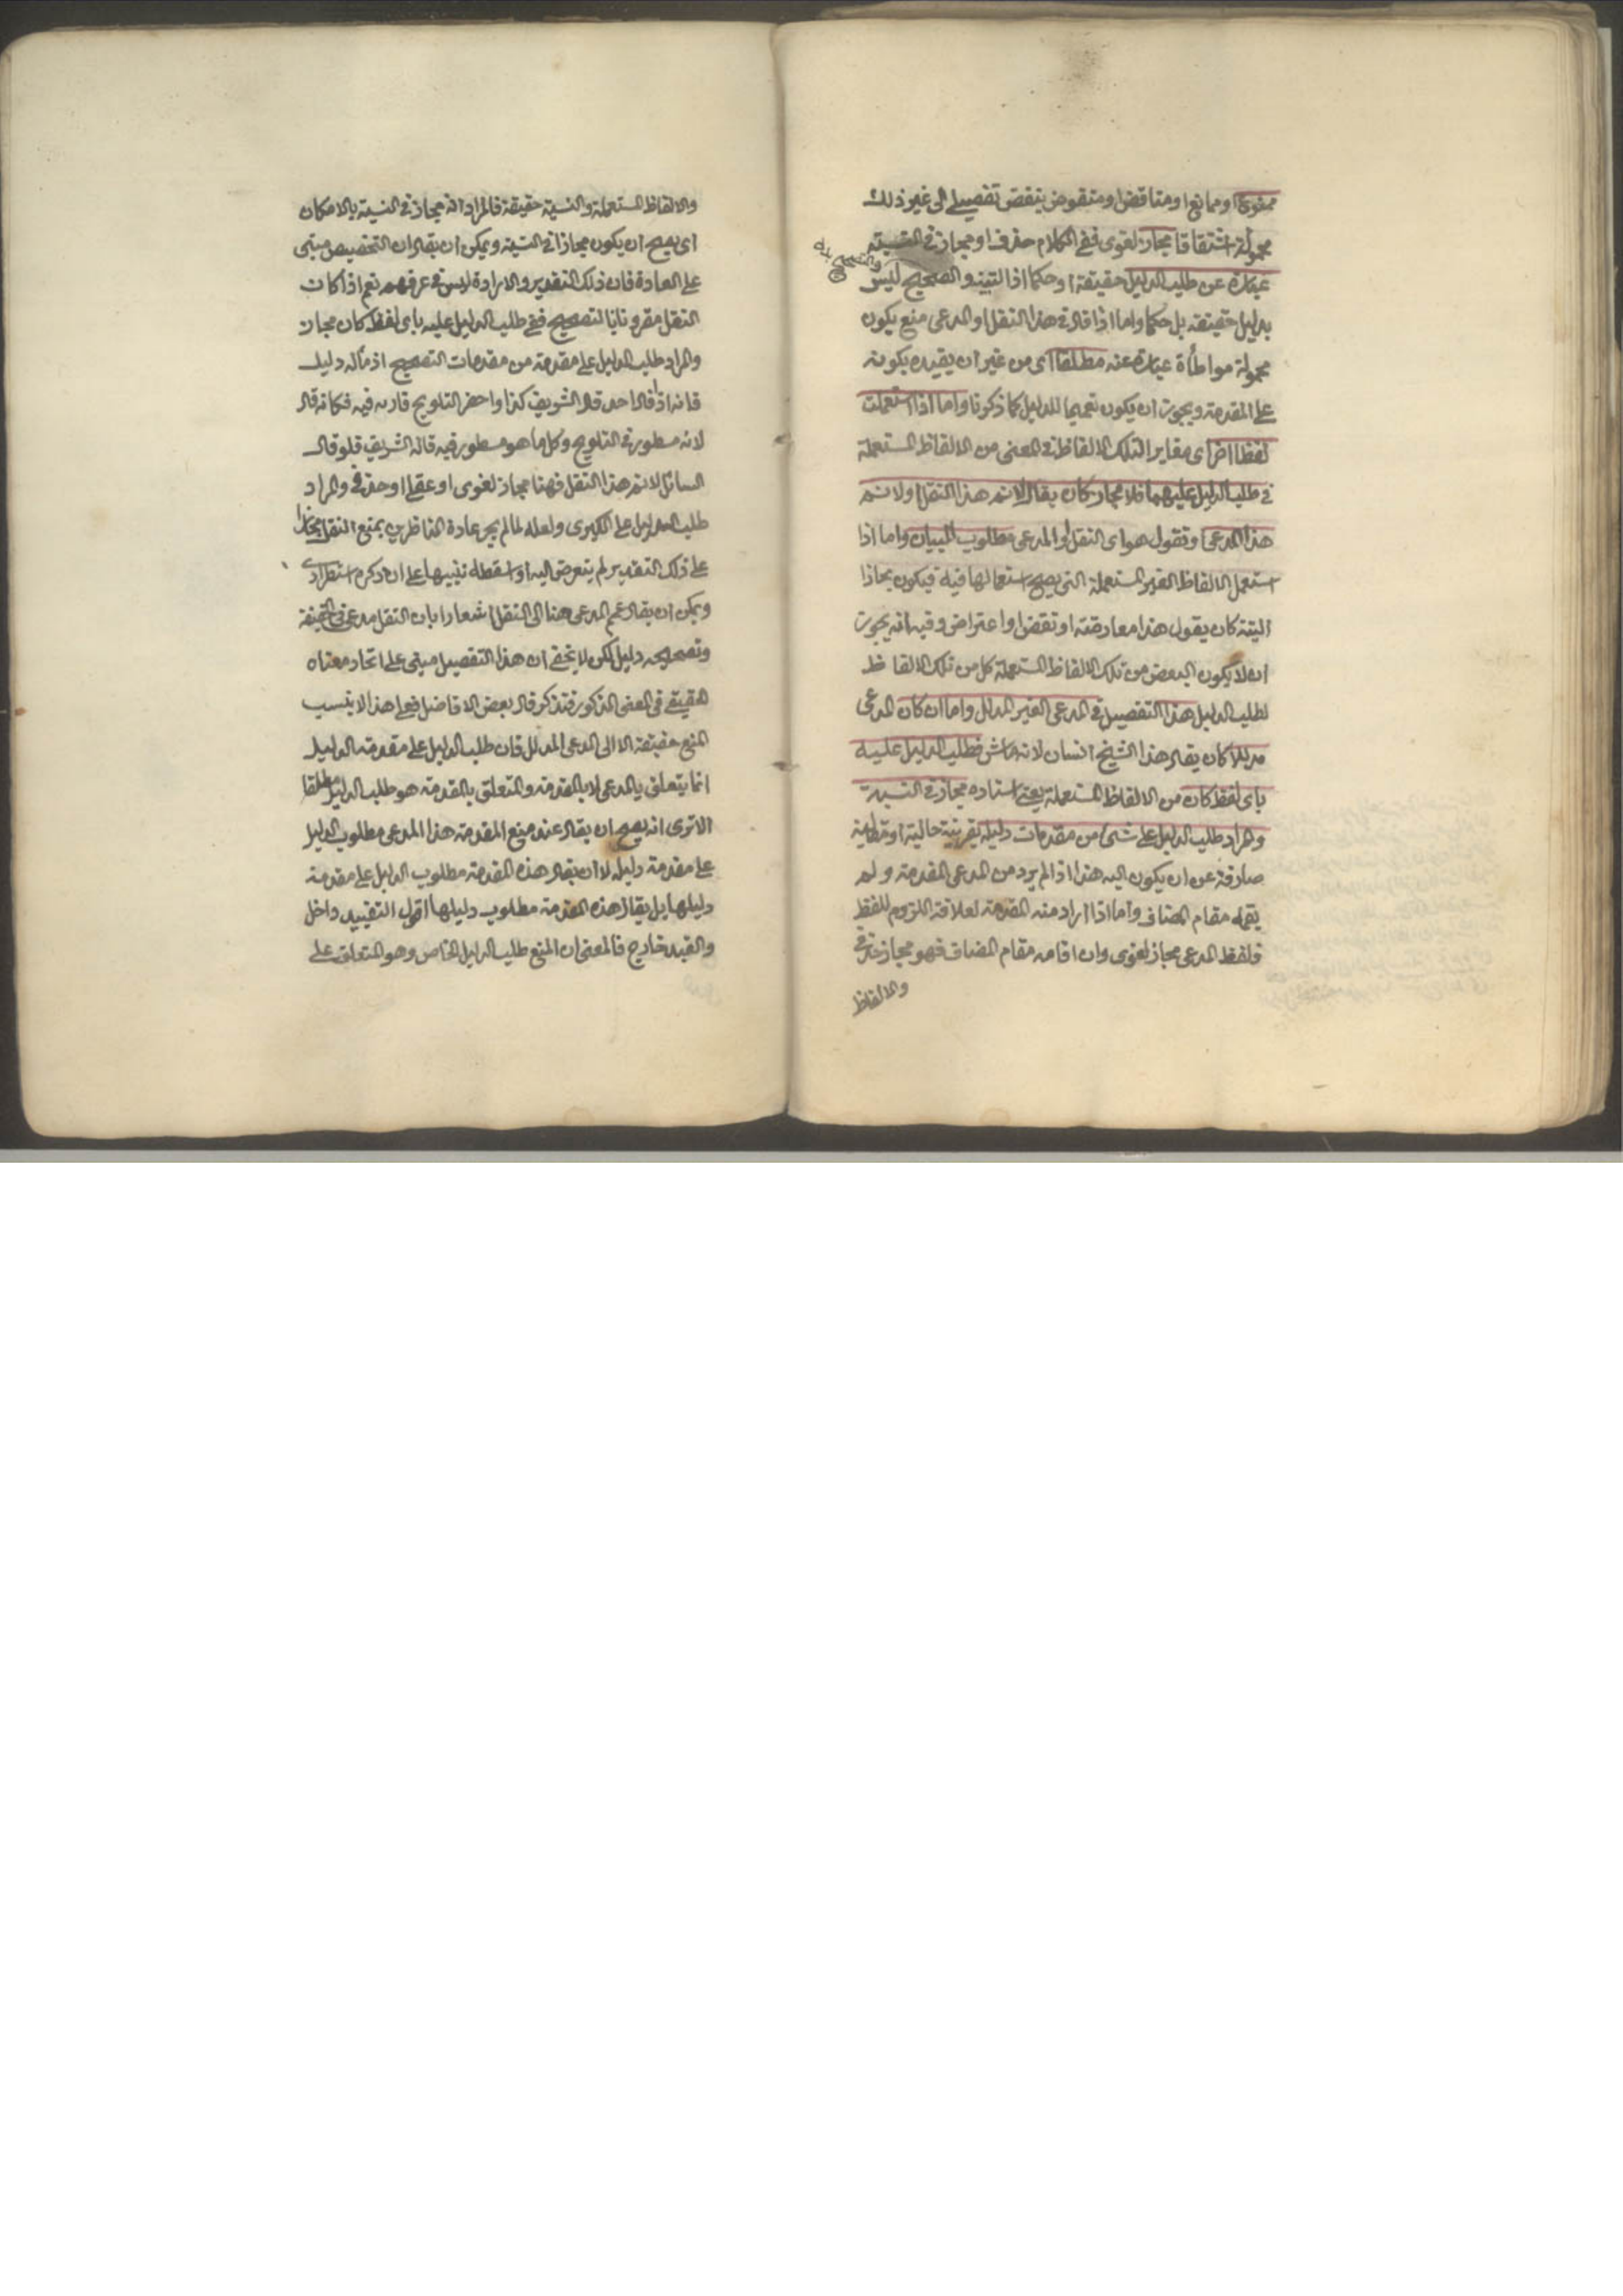 ممنوعا او ممانعا او متاقضا او منقوض بنقض تفصيلى الى غير ذلك
محمولة اشتقاقا مجاز لغوى ففى الكلام حذف او مجاز فى النسبة
عبارة عن طلب الدليل حقيقة او حكما اذ التبيه والتصحيح ليس
بدليل حقيقة بل حكما واما اذا قال فى هذا النقل او المدعى منع يكون
محمولة مواطأة عبارة عنه مطلقا اى من غير ان يقيده بكونه
على المقدمة ويجوز ان يكون تعميما للدليل كما ذكرنا واما اذا استعملت
لفظا اخر اى مغايرا لتلك الالفاظ فى المعنى من الالفاظ المستعملة
فى طلب الدليل عليهما فلا مجاز كان يقال لا نم هذا النقل او لا نم
هذا المدعى او تقول هو اى النقل او المدعى مطلوب البيان واما اذا
استعمل الالفاظ الغير المستعملة التى يصح استعمالها فيه فيكون مجازا
البتة كان يقول هذا معارضة او نقض او اعتراض وفيه انه يجوز
ان لا يكون البعض من تلك الالفاظ المستعملة كل من تلك الالفاظ
لطلب الدليل هذا التفصيل فى المدعى الغير المدلل واما ان كان المدعى
مدللا كان يقال هذا الشيخ انسان لانه ماش فطلب الدليل عليه
باى لفظ كان من الالفاظ المستعملة يعنى اسناده مجاز فى النسبة
والمراد طلب الدليل على شئ من مقدمات دليله بقرينة حالية او مقالية
صارفة عن ان يكون اليه هذا اذا لم يرد من المدعى المقدمة ولم
يقمه مقام المضاف واما اذا اراد منه المقدمة لعلاقة اللزوم للفظ
فلفظ المدعى مجاز لغوى وان اقامه مقام المضاف فهو مجاز حذفى
والالفاظ
والالفاظ المستعملة والنسبة حقيقة فالمراد انه مجاز فى النسبة بالامكان
اى يصح ان يكون مجازا فى النسبة ويمكن ان يقال ان التخصيص مبنى
على العادة فان ذلك التقدير والارادة ليس فى عرفهم نعم اذا كان
النقل مقرونا بالتصحيح ففى طلب الدليل عليه باى لفظ كان مجاز
والمراد طلب الدليل على مقدمة من مقدمات التصحيح اذ مآله دليل
فانه اذا قال احد قال الشريف كذا واحضر التلويح فاراه فيه فكانه قال
لانه مسطور فى التلويح وكل ما هو مسطور فيه قاله الشريف فلو قال
السائل لا نم هذا النقل فهنا مجاز لغوى او عقلى او حذفى والمراد
طلب الدليل على الكبرى ولعله لما لم يجر عادة المناظرين بمنع النقل مجازا
على ذلك التقدير لم يتعرض اليه او اسقطه تنبيها على ان ذكره استطرادى
ويمكن ان يقال عمم المدعى هنا الى النقل اشعارا بان النقل مدعى فى الحقيقة
وتصحيحه دليل لكن لا يخفى ان هذا التفصيل مبنى على اتحاد معناه
الحقيقى فى المعنى المذكور فتذكر قال بعض الافاضل فعلى هذا لا ينسب
المنع حقيقة الا الى المدعى المدلل فان طلب الدليل على مقدمة الدليل
انما يتعلق بالمدعى لا بالمقدمة والمتعلق بالمقدمة هو طلب الدليل مطلقا
الا ترى انه يصح ان يقال عند منع المقدمة هذا المدعى مطلوب الدليل
على مقدمة دليله لا ان يقال هذه المقدمة مطلوب الدليل على مقدمة
دليلها بل يقال هذه المقدمة مطلوب دليلها اقول التقييد داخل
والقيد خارج فالمعنى ان المنع طلب الدليل الخاص وهو المتعلق على